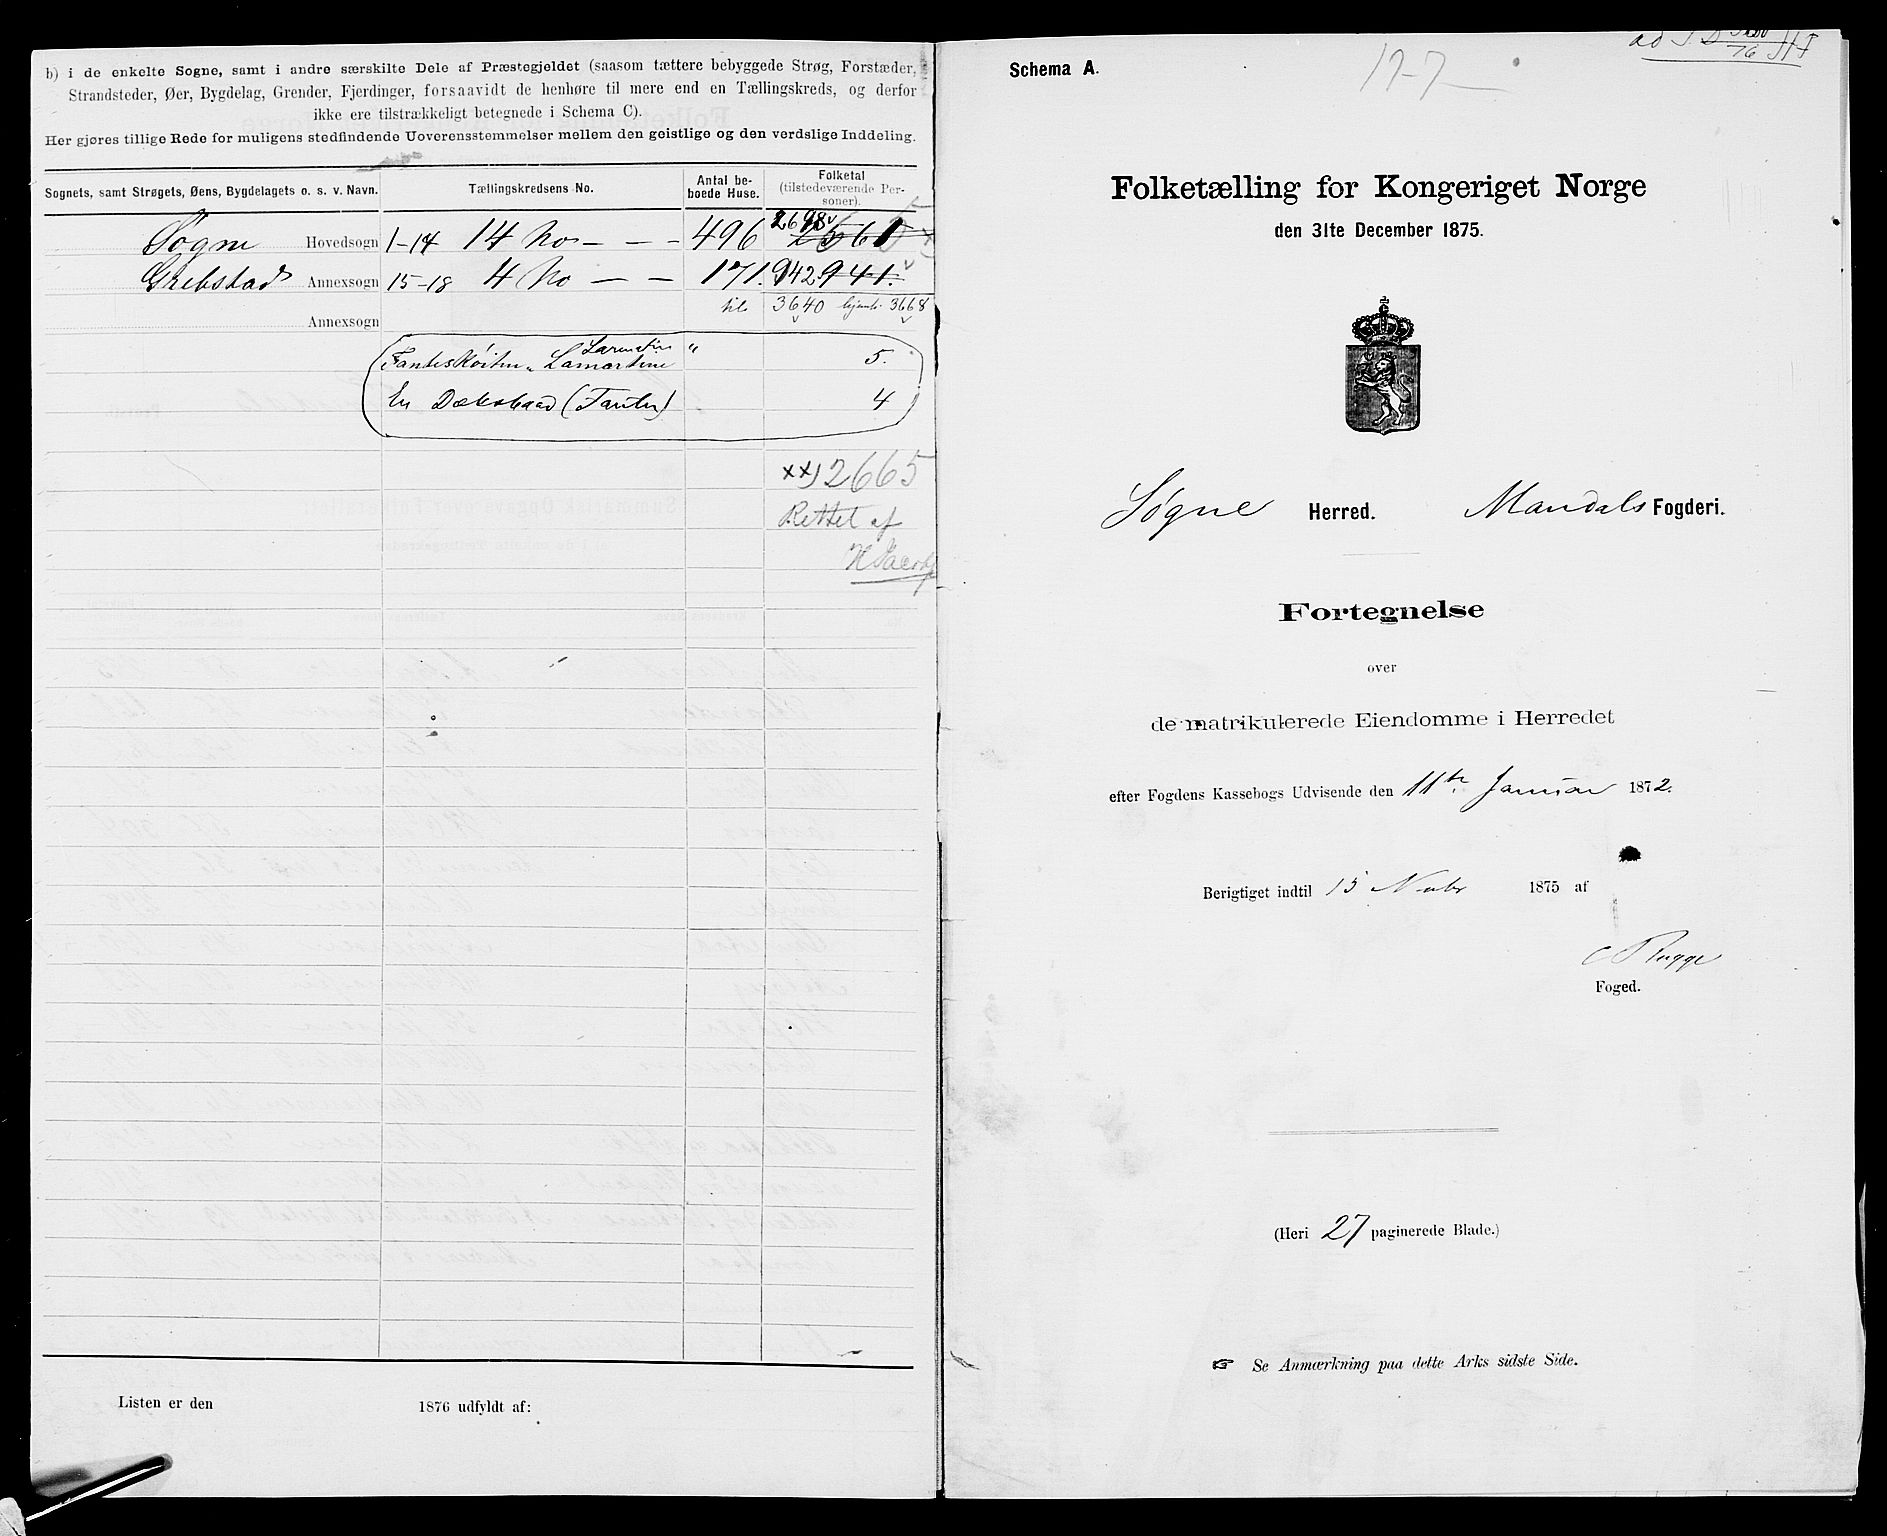 b) i de enkelte Sogne, samt i andre særskilte Dele af Præstegjeldet (saasom tættere bebyggede Strøg, Forstæder,
Strandsteder, Øer, Bygdelag, Grender, Fjerdinger, forsaavidt de henhøre til mere end en Tællingskreds, og derfor
ikke ere tilstrækkeligt betegnede i Schema C).
Her gjøres tillige Rede for muligens stedfindende Uoverensstemmelser mellem den geistlige og den verdslige Inddeling.
Sognets, samt Strøgets, Øens, Bygdelagets o. s. v. Navn. Tællingskredsens No. Antal beboede Huse. Folketal (tilstedeværende Personer).
Søgne Hovedsogn 1-14 14 No - - - 496 2698 2561
Grebstad Annexsogn 15-18 4 No - - 171. 942 941.
Annexsogn
3640 3668
Fanteskøiten "Lamartine" 5.
En Dæksbaad (Fanter) 4
xx) 2665
Rettet af
Listen er den 1876 udfyldt af:
Schema A.
Folketælling for Kongeriget Norge
den 31te December 1875.
Søgne Herred. Mandals Fogderi.
Fortegnelse
over
de matrikulerede Eiendomme i Herredet
efter Fogdens Kassebogs Udvisende den 11te Januar 1872.
Berigtiget indtil 15 Novbr 1875 af
Rugge
Foged.
(Heri 27 paginerede Blade.)
☞ Se Anmærkning paa dette Arks sidste Side.